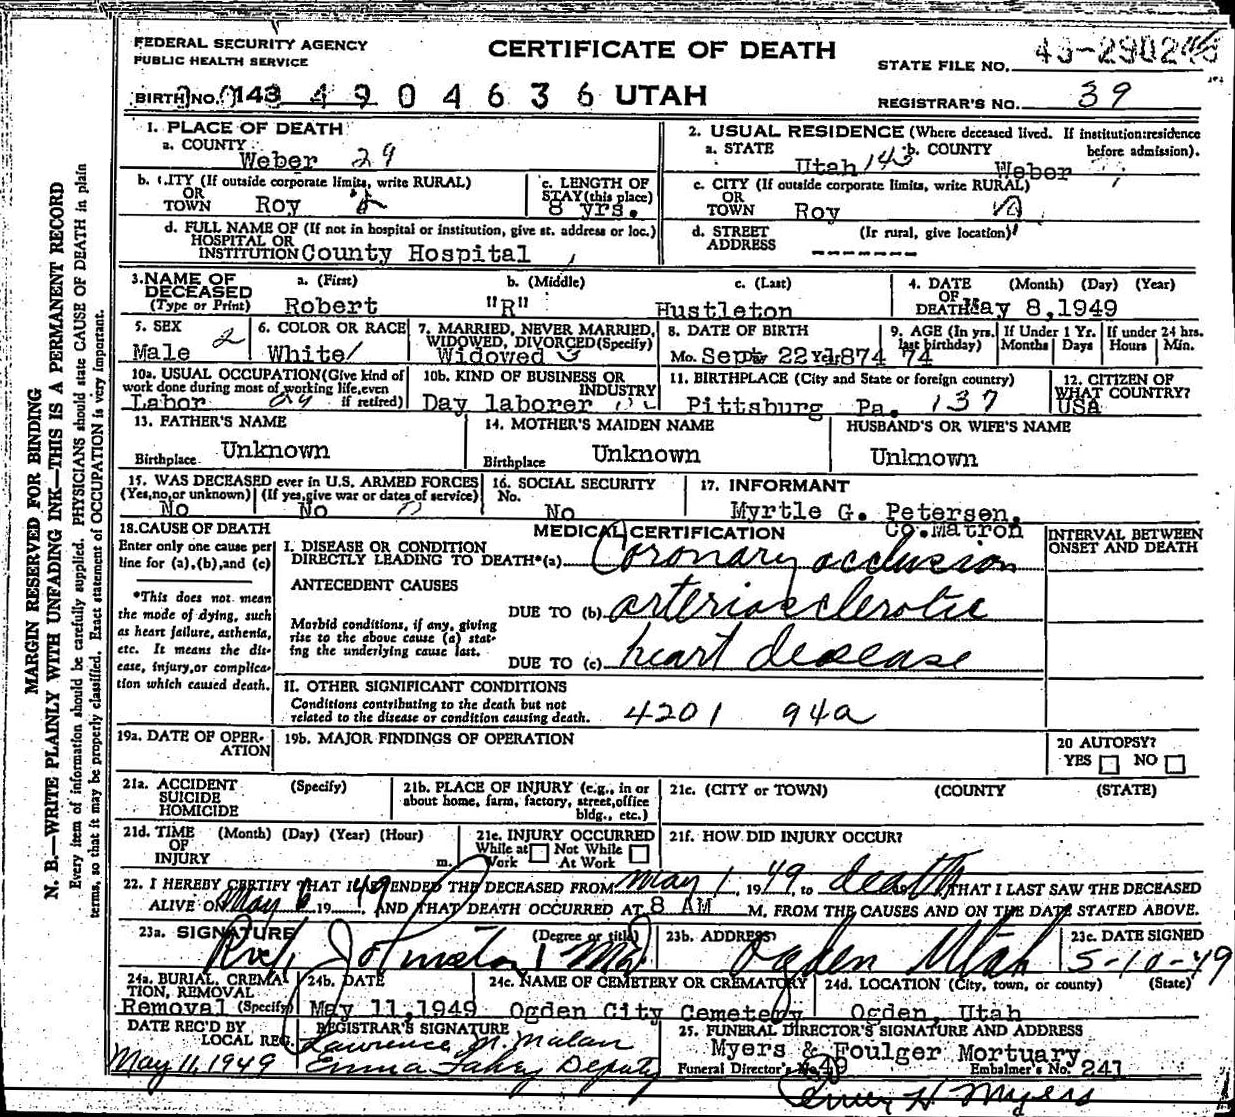 FEDERAL SECURITY AGENCY
PUBLIC HEALTH SERVICE
CERTIFICATE OF DEATH
STATE FILE NO.
BIRTH NO. 143 4904636 UTAH
REGISTRAR'S NO. 39
1. PLACE OF DEATH
a. COUNTY Weber 29
b. CITY (If outside corporate limits, write RURAL)
OR
TOWN Roy
c. LENGTH OF
STAY (this place)
8 yrs.
d. FULL NAME OF (If not in hospital or institution, give st. address or loc.)
HOSPITAL OR
INSTITUTION County Hospital
2. USUAL RESIDENCE (Where deceased lived. If institution:residence
before admission).
a. STATE Utah 143 b. COUNTY Weber
c. CITY (If outside corporate limits, write RURAL)
OR
TOWN Roy
d. STREET (If rural, give location)
ADDRESS -------
3. NAME OF
DECEASED
(Type or Print)
a. (First) Robert
b. (Middle) "R"
c. (Last) Hustleton
4. DATE (Month) (Day) (Year)
OF
DEATH May 8,1949
5. SEX
Male 2
6. COLOR OR RACE
White
7. MARRIED, NEVER MARRIED,
WIDOWED, DIVORCED (Specify)
Widowed 3
8. DATE OF BIRTH
Mo. Sept 22 Yr. 1874
9. AGE (In yrs.
last birthday)
74
If Under 1 Yr.
Months Days
If under 24 hrs.
Hours Min.
10a. USUAL OCCUPATION (Give kind of
work done during most of working life, even
if retired)
Labor
10b. KIND OF BUSINESS OR
INDUSTRY
Day laborer
11. BIRTHPLACE (City and State or foreign country)
Pittsburg Pa. 137
12. CITIZEN OF
WHAT COUNTRY?
USA
13. FATHER'S NAME
Unknown
Birthplace
14. MOTHER'S MAIDEN NAME
Unknown
Birthplace
HUSBAND'S OR WIFE'S NAME
Unknown
15. WAS DECEASED ever in U.S. ARMED FORCES
(Yes, no, or unknown) (If yes, give war or dates of service)
No No
16. SOCIAL SECURITY
No.
No
17. INFORMANT
Myrtle G. Petersen,
Co. Matron
18. CAUSE OF DEATH
Enter only one cause per
line for (a), (b), and (c)
*This does not mean
the mode of dying, such
as heart failure, asthenia,
etc. It means the dis-
ease, injury, or complica-
tion which caused death.
MEDICAL CERTIFICATION
INTERVAL BETWEEN
ONSET AND DEATH
I. DISEASE OR CONDITION
DIRECTLY LEADING TO DEATH*(a) Coronary occlusion
ANTECEDENT CAUSES
DUE TO (b) arteriosclerotic
Morbid conditions, if any, giving
rise to the above cause (a) stat-
ing the underlying cause last.
DUE TO (c) heart desease
II. OTHER SIGNIFICANT CONDITIONS
Conditions contributing to the death but not
related to the disease or condition causing death.
4201 94a
19a. DATE OF OPER-
ATION
19b. MAJOR FINDINGS OF OPERATION
20 AUTOPSY?
YES NO
21a. ACCIDENT (Specify)
SUICIDE
HOMICIDE
21b. PLACE OF INJURY (e.g., in or
about home, farm, factory, street, office
bldg., etc.)
21c. (CITY or TOWN) (COUNTY (STATE)
21d. TIME (Month) (Day) (Year) (Hour)
OF
INJURY m.
21e. INJURY OCCURRED
While at Not While
Work At Work
21f. HOW DID INJURY OCCUR?
22. I HEREBY CERTIFY THAT I ATTENDED THE DECEASED FROM May 1, 1949, to death, THAT I LAST SAW THE DECEASED
ALIVE ON May 6 1949, AND THAT DEATH OCCURRED AT 8 AM M, FROM THE CAUSES AND ON THE DATE STATED ABOVE.
23a. SIGNATURE (Degree or title)
Johnston MD
23b. ADDRESS
Ogden Utah
23c. DATE SIGNED
5-10-49
24a. BURIAL, CREMA-
TION, REMOVAL
Removal (Specify)
24b. DATE
May 11,1949
24c. NAME OF CEMETERY OR CREMATORY
Ogden City Cemetery
24d. LOCATION (City, town, or county) (State)
Ogden, Utah
DATE REC'D BY
LOCAL REG.
May 11, 1949
REGISTRAR'S SIGNATURE
Lawrence M. Malan
Emma Fahey Deputy
25. FUNERAL DIRECTOR'S SIGNATURE AND ADDRESS
Myers & Foulger Mortuary
Funeral Director's No. 49 Embalmer's No. 241
H Myers
MARGIN RESERVED FOR BINDING
N. B.—WRITE PLAINLY WITH UNFADING INK—THIS IS A PERMANENT RECORD
Every item of information should be carefully supplied. PHYSICIANS should state CAUSE OF DEATH in plain
terms, so that it may be properly classified. Exact statement of OCCUPATION is very important.